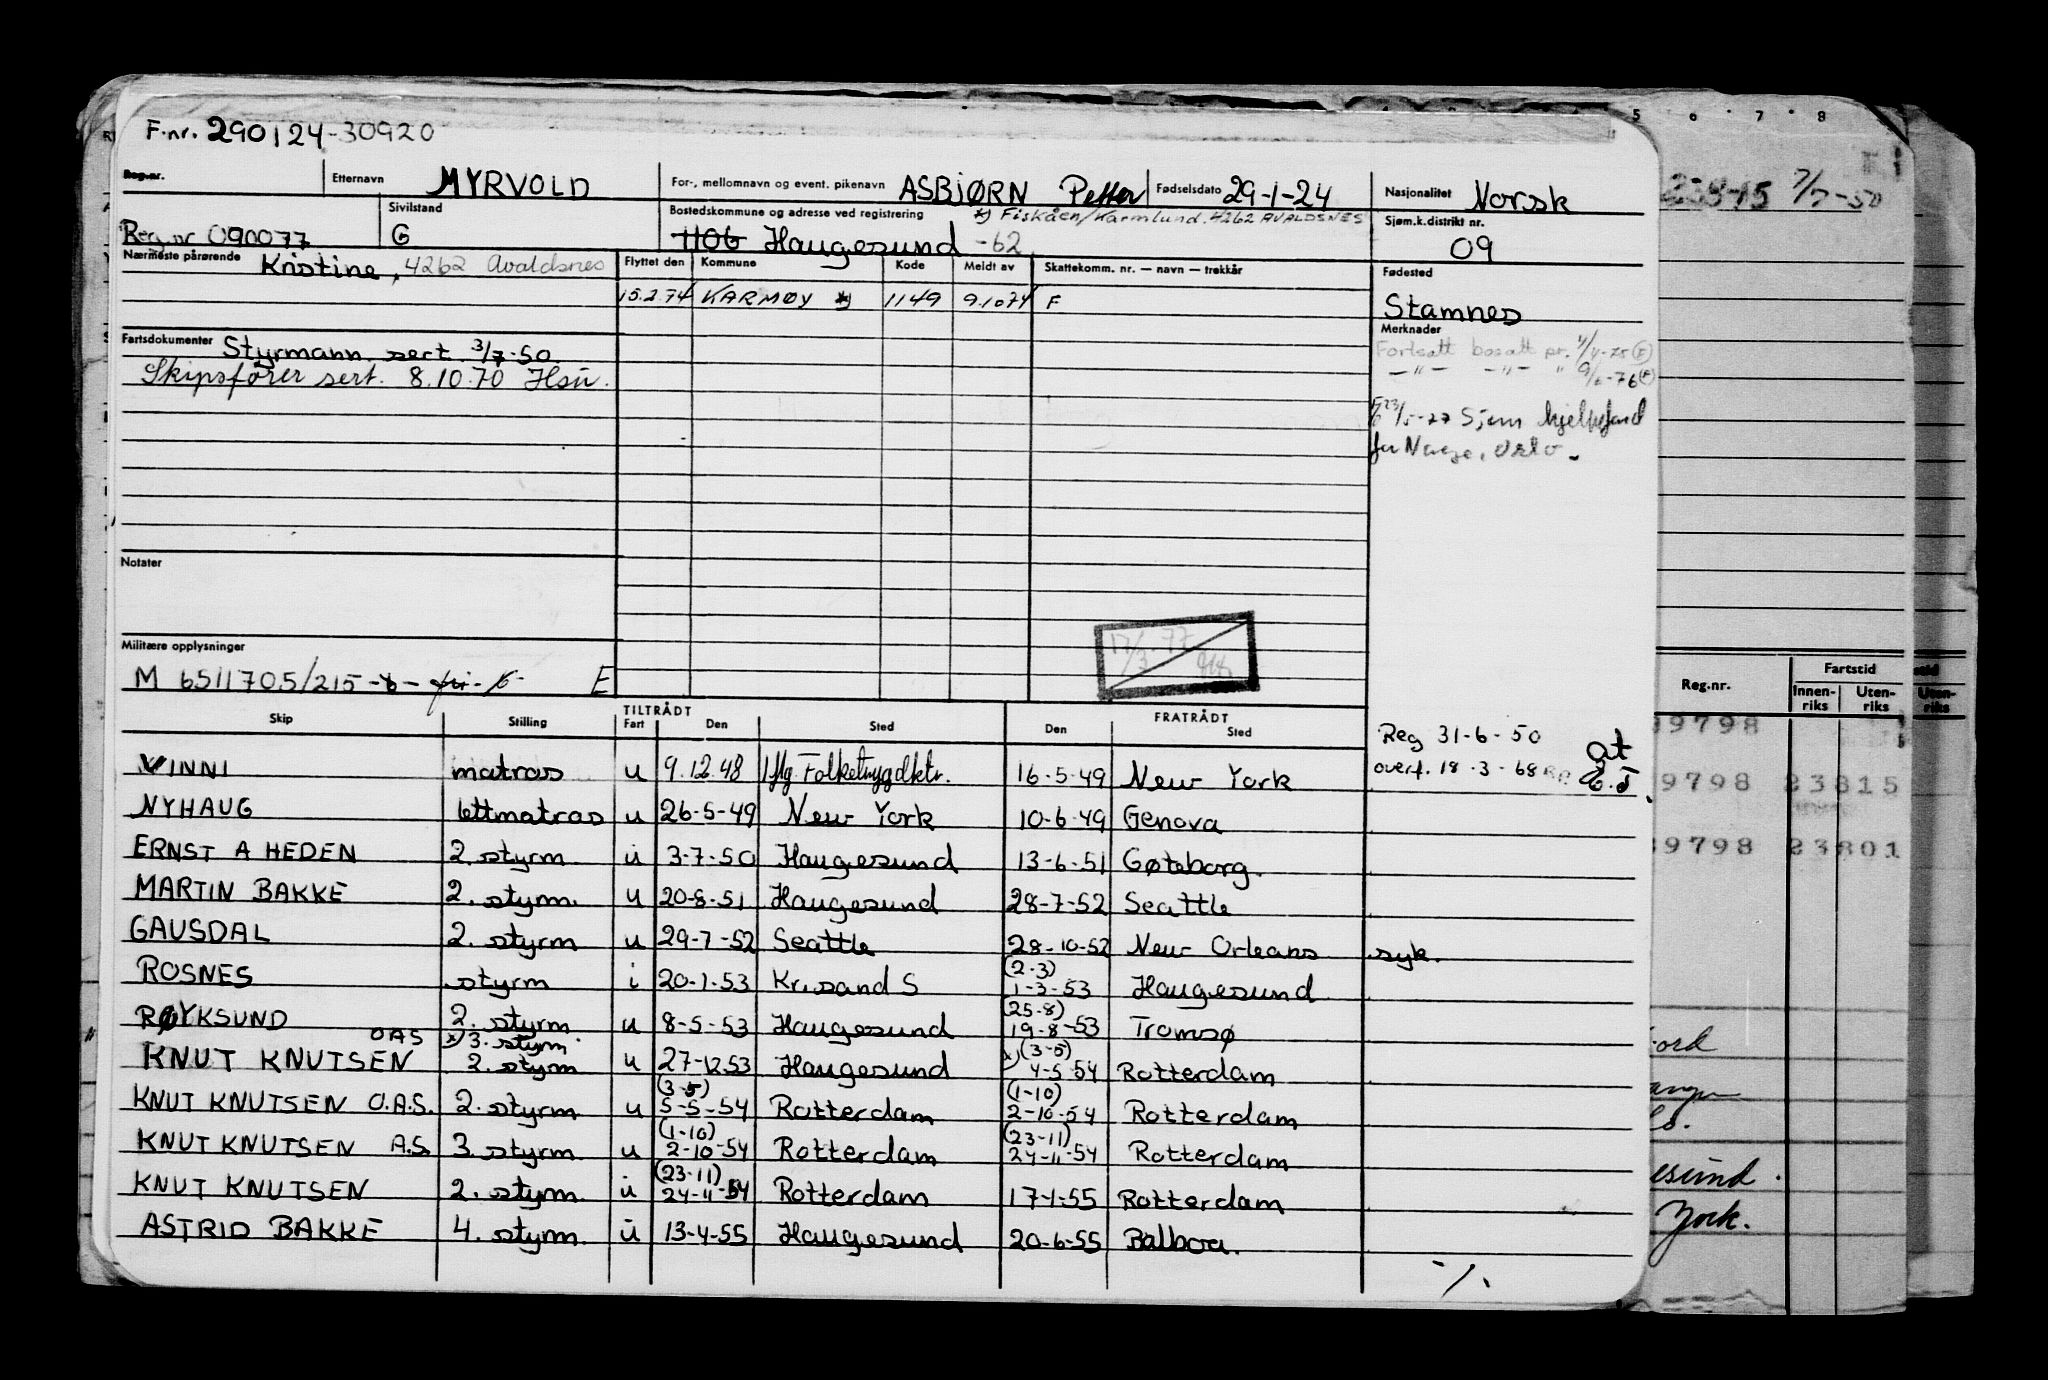 F.nr. 290124-30920
Reg.nr. Etternavn MYRVOLD For-, mellomnavn og event. pikenavn ASBJØRN Petter Fødselsdato 29-1-24 Nasjonalitet Norsk
Reg nr 090077 Sivilstand G Bostedskommune og adresse ved registrering *) Fiskåen/Karmlund. 4262 AVALDSNES Sjøm.k.distrikt nr.
1106 Haugesund -62 09
Nærmeste pårørende Kristine, 4262 Avaldsnes Flyttet den Kommune Kode Meldt av Skattekomm. nr. — navn — trekkår Fødested
15.2.74 KARMØY *) 1149 9.10.74 F Stamnes
Fartsdokumenter Styrmann sert. 3/7-50. Merknader
Skipsfører sert. 8.10.70 Hsu.
Fortsatt bosatt pr. 1/4-75 (F)
— " — — " — " 9/6-76 (F)
23/5-77 Sjøm hjelpefond
for Norge, Oslo.
Notater
17/3.77
Militære opplysninger
M 6511705/215 E
Skip Stilling TILTRÅDT Fart Den Sted FRATRÅDT Den Sted
Reg 31-6-50 at
overf. 18-3-68
VINNI matros u 9.12.48 Iflg. Folketrygdktr. 16-5-49 New York
NYHAUG lettmatros u 26-5-49 New York 10-6-49 Genova
ERNST A HEDEN 2. styrm u 3-7-50 Haugesund 13-6-51 Gøteborg.
MARTIN BAKKE 2. styrm. u 20-8-51 Haugesund 28-7-52 Seattle
GAUSDAL 2. styrm u 29-7-52 Seattle 28-10-52 New Orleans syk.
ROSNES styrm i 20-1-53 Kr.sand S (2-3) 1-3-53 Haugesund
RØYKSUND 2. styrm u 8-5-53 Haugesund (25-8) 19-8-53 Tromsø
KNUT KNUTSEN OAS x) 3. styrm 2. styrm u 27-12.53 Haugesund x) (3-5) 4-5-54 Rotterdam
KNUT KNUTSEN O.A.S. 2. styrm u (3-5) 5-5-54 Rotterdam (1-10) 2-10-54 Rotterdam
KNUT KNUTSEN A.S. 3. styrm u (1-10) 2-10-54 Rotterdam (23-11) 24-11-54 Rotterdam
KNUT KNUTSEN 2. styrm. u (23-11) 24-11-54 Rotterdam 17-1-55 Rotterdam
ASTRID BAKKE 4. styrm. u 13-4-55 Haugesund 20-6-55 Balboa.
·/.
5 6 7 8
7/7-50
Reg.nr. Fartstid
Innen-riks Uten-riks
Uten-riks
9798
9798 23815
9798 23801
York.